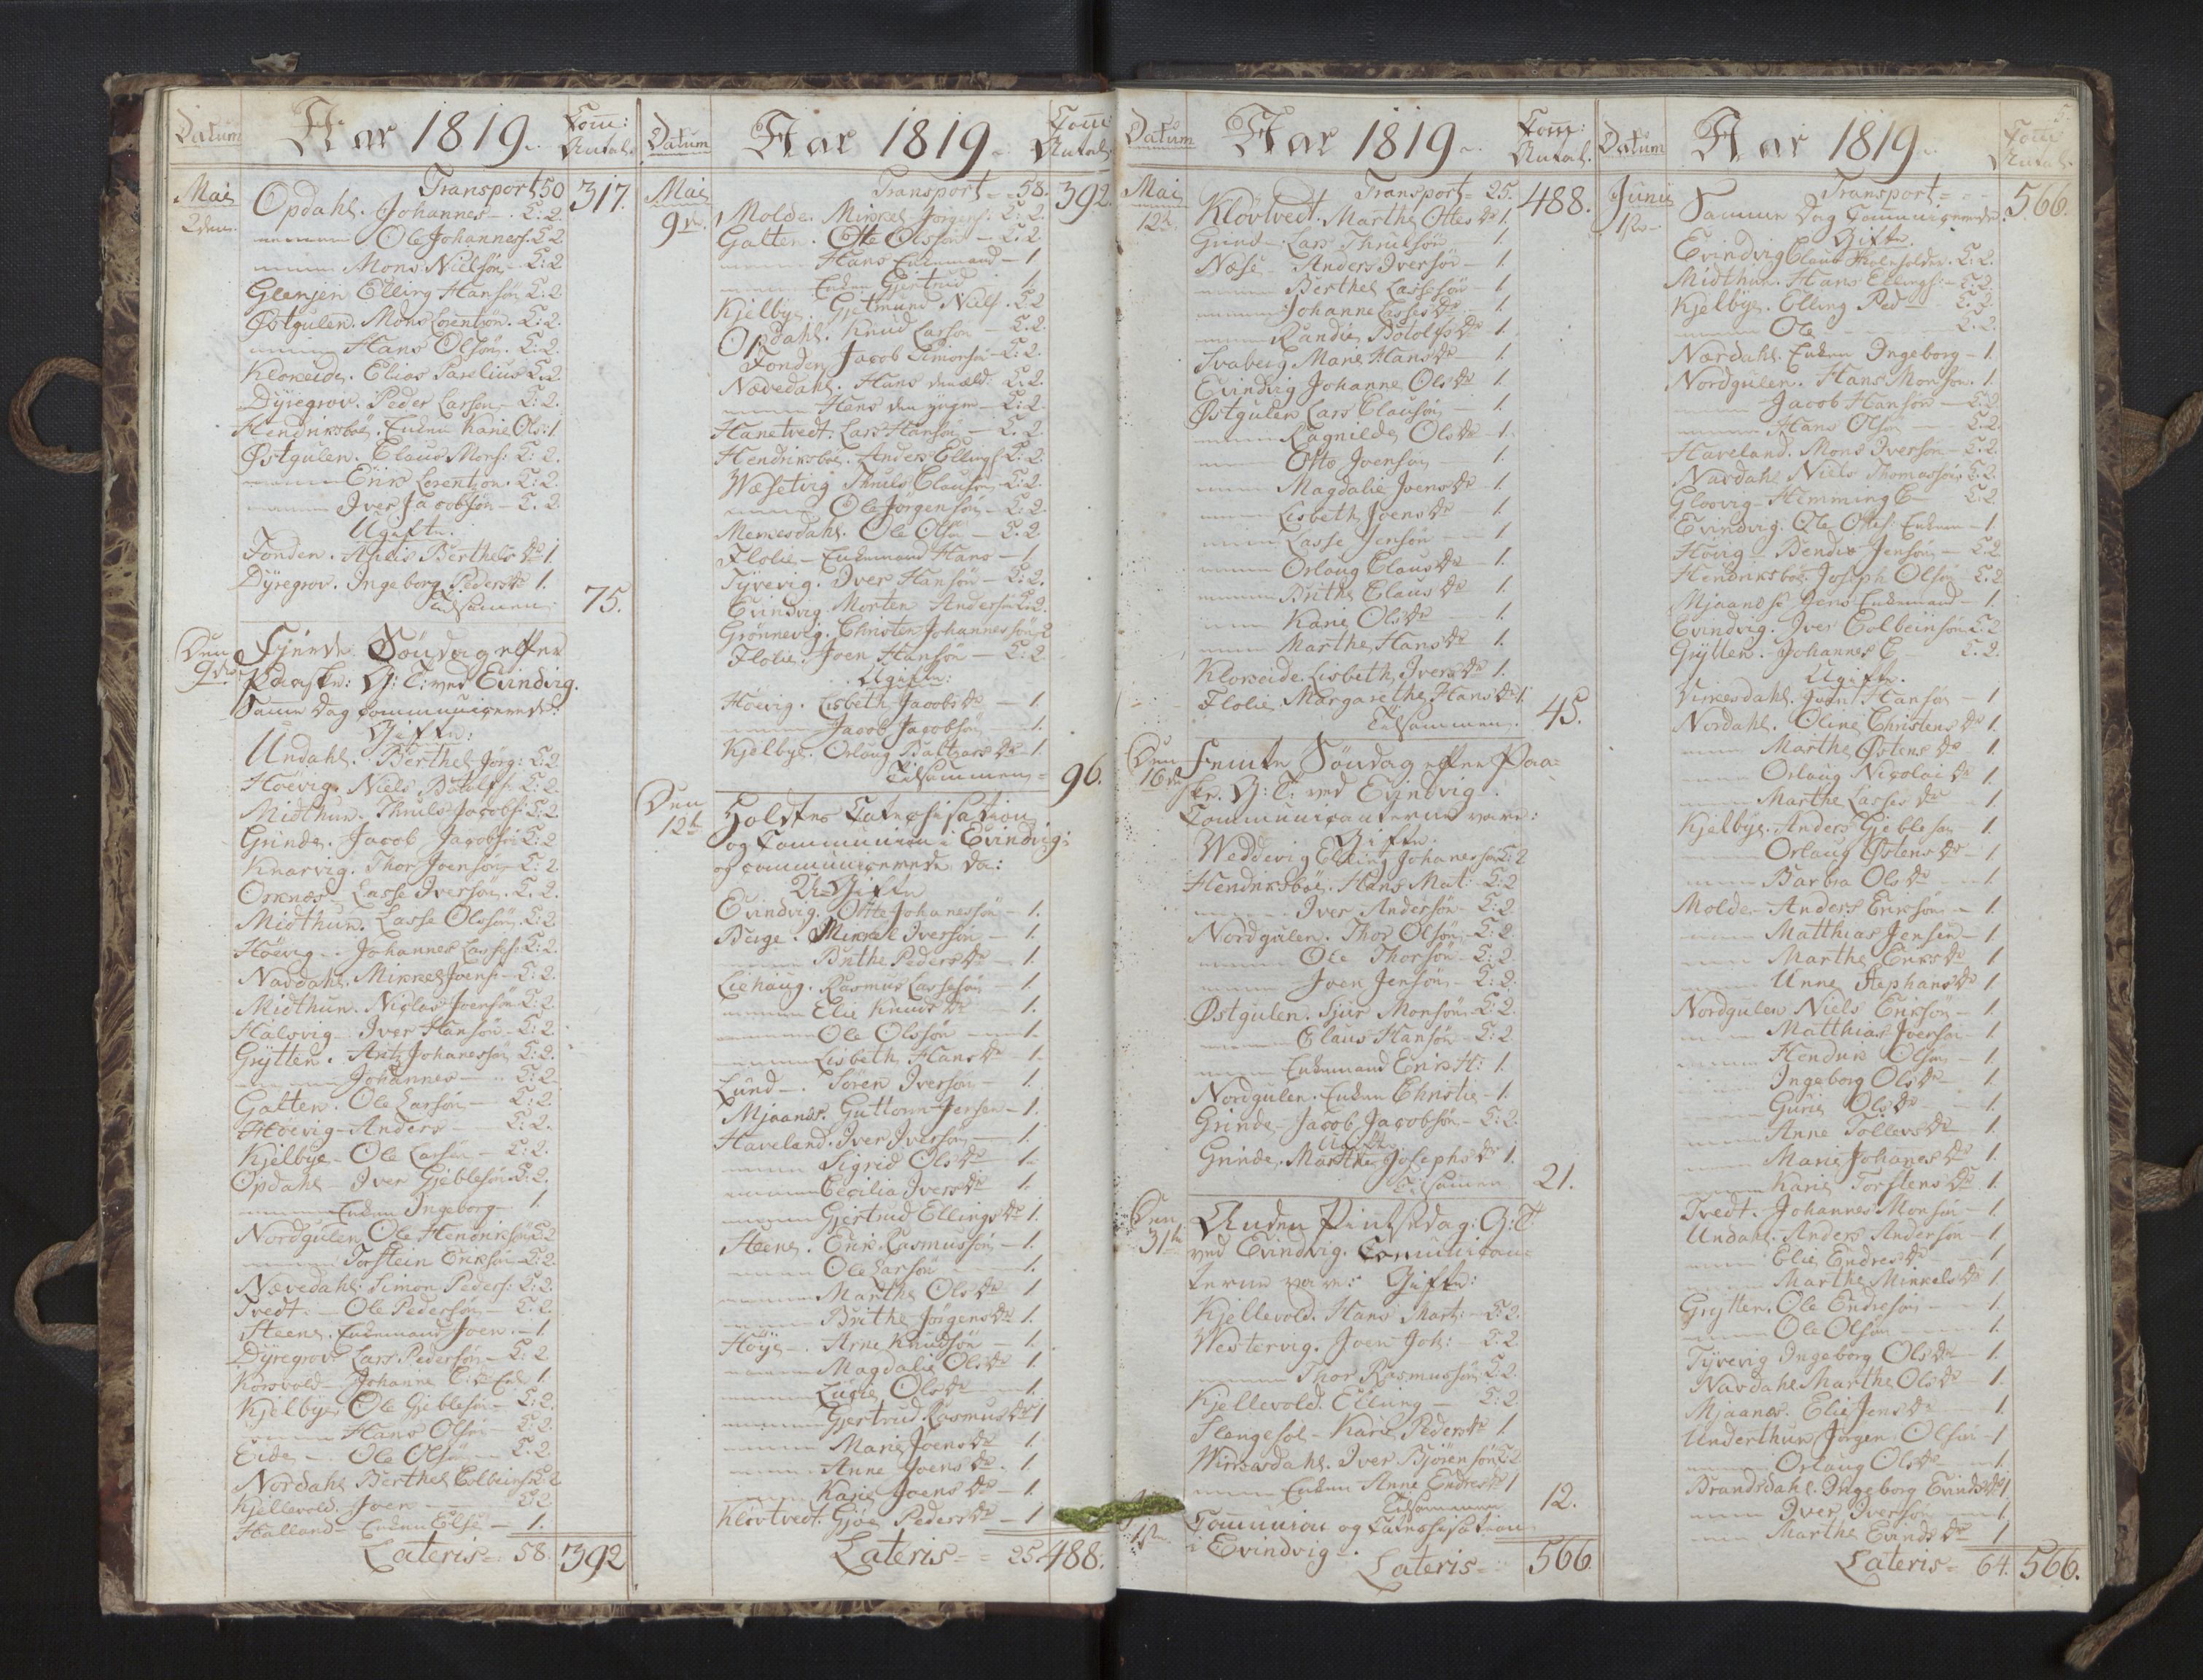 Datum
Aar 1819.
Com̄:
Antal.
Mai
2den.
Transport 50
317.
Opdahl. Johannes - C: 2.
Ole Johanness. C: 2
Mons Nielsøn - C: 2
Glenjen Elling Hansøn C: 2
Østgulen. Mons Lorentzøn. C: 2.
Hans Olsøn. C: 2.
Kloveide. Elias Paulius C: 2
Dyregrov. Peder Larsøn - C: 2.
Hendriksbøe. Enken Kari Ols: 1.
Østgulen. Claus Mons: C: 2.
Erik Lorentzøn. C: 2.
Iver Jacobsøn - C. 2
Ugifte.
Tonden. Berthels Dr 1.
Dyregrov. Ingeborg Peders Dr 1.
Tilsamen: 75.
Den
9de
Fjerde Søndag efter
Paaske: G: T: ved Evindvig.
Samme Dag communicerede:
Gifte:
Undahl. Berthel Jørg: C: 2
Høevig. Niels Botolfs. C: 2.
Midthun. Thruls Jacobs: C: 2.
Grinde. Jacob Jacobsøn C: 2
Knarvig. Thor Joensøn C: 2.
Ornæs. Lasse Iversøn. C. 2.
Midthun. Lasse Olsøn. C: 2.
Høevig. Johannes Lasses: C: 2.
Navdahl. Mikkel Joens - C: 2.
Midthun. Niclas Joensøn C: 2.
Halsvig. Iver Hansøn - C: 2.
Grytten. Antz Johanessøn C: 2.
Johannes - C: 2.
Galten. Ole Larsøn - C: 2.
Høevig - Anders - C: 2.
Kjelbye - Ole Larsøn - C: 2.
Opdahl - Iver Gjeblesøn C: 2.
Enken Ingeborg - 1.
Nordgulen Ole Hendriksøn C: 2
Torstein Eriksøn C: 2.
Nævedahl. Simon Peders: C: 2.
Tvedt. - Ole Pedersøn - C: 2.
Steene. Enkemand Joen. - 1.
Dyregrov Lars Pedersøn - C: 2.
Korsvold - Johanne 1.
Kjelbye. Ole Gjeblesøn - C: 2.
Hans Olsøn - C: 2.
Eide - Ole Olsøn - C: 2.
Nordahl Berthel Colbeinsøn C: 2
Kjellevold. Joen - C: 2.
Halland - Enken Else - 1.
Lateris = 58. 392

Datum
Aar 1819.
Com̄:
Antal.
Mai
9de.
Transport = 58. 392.
Molde. Mikkel Jørgens: C: 2.
Galten. Otte Olsøn - C: 2.
Hans Enkemand - 1
Enken Gjertrud 1.
Kjelbye. Getmund Niels. C: 2
Opdahl. Knud Larsøn - C: 2.
Tonden Jacob Simonsøn - C: 2.
Nævedahl. Hans den æld: C: 2.
Hans den yngre - C: 2.
Hanetvedt. Lars Hansøn - C. 2.
Hendriksbøe. Anders Ellings C: 2.
Wæsetvig Thruls Clausøn - C: 2.
Ole Jørgensøn - C: 2.
Menesdahl. Ole Olsøn - C. 2
Flolie - Enkemand Hans - 1.
Tyvevig. Iver Hansøn - C: 2.
Evindvig. Morten Andersøn C: 2.
Grønnevig. Christen Johannessøn C: 2
Flolie. Joen Hansøn - C: 2.
Ugifte:
Høevig. Lisbeth Jacobs Dr - 1.
Jacob Jacobsøn - 1.
Kjelbye. Orlaug Baltzars Dr 1.
Tilsammen = 96.
Den
12te
Holdtes Catechisation
og Communion i Evindvig;
og communicerede da:
U-Gifte
Evindvig. Otte Johanessøn - 1.
Berge. Mikkel Iversøn - 1.
Brithe Peders Dr - 1.
Liehaug. Rasmus Lassesøn - 1
Elie Knuds Dr - 1.
Ole Olsøn - 1.
Lisbeth Hans Dr 1.
Lund -. Søren Iversøn - 1.
Mjaanes. Guttorm Jensen - 1.
Haveland. Iver Iversøn - 1.
Sigrid Ols Dr 1.
Cecilia Ivers Dr 1.
Gjertrud Ellings Dr 1.
Steene. Erik Rasmussøn - 1.
Ole Larsøn - 1.
Marthe Ols Dr 1
Brithe Jørgens Dr 1.
Høye -. Arne Knudsøn - 1.
Magdalie Ols Dr 1
Lucie Ols Dr 1.
Gjertrud Rasmus Dr 1
Marie Joens Dr 1
Anne Joens Dr. 1.
Karie Joens Dr - 1
Kløvtvedt. Gjøe Peders Dr - 1
Lateris = 25. 488.

Datum
Aar 1819.
Com̄:
Antal.
Mai
12te
Transport = 25. 488.
Kløvtvedt. Marthe Ottes Dr 1.
Gund -. Lars Thrulsøn 1.
Næse - Anders Iversøn - 1.
Berthel Lassesøn - 1
Johanne Lasses Dr 1.
Randie Botolfs Dr 1.
Svaberg Marie Hans Dr 1
Evindvig Johanne Ols Dr 1.
Østgulen Lars Clausøn - 1.
Ragnilde Ols Dr 1.
Otto Joensøn 1.
Magdalie Joens Dr - 1
Lisbeth Joens Dr 1
Lasse Jensøn - 1
Orlaug Claus Dr 1.
Brithe Claus Dr 1
Karie Ols Dr 1.
Marthe Hans Dr 1.
Kloveide. Lisbeth Ivers Dr 1.
Flolie. Margarethe Hans Dr 1
Tilsammen. 45.
Den
16de
Femte Søndag efter Paa=
ske. G: T: ved Evindvig.
Communicanterne vare:
Gifte.
Weddevig Elling Johanessøn C: 2
Hendriksbøe. Hans Mat: - C: 2
Iver Andersøn - C: 2
Nordgulen. Thor Olsøn - C: 2.
Ole Thorsøn - C: 2.
Joen Jensøn - C: 2.
Østgulen. Sjur Monsøn C: 2.
Claus Hansøn - C: 2
Enkemand Erik H: 1.
Nordgulen. Enken Christie - 1.
Grinde - Jacob Jacobsøn - C: 2.
Ugifte
Grinde. Marthe Josephs Dr 1.
Tilsamen 21.
Den
31te
Anden Pintsedag. G: T:
ved Evindvig. Communican-
terne vare: Gifte:
Kjellevold. Hans Mart: - C: 2.
Westervig. Joen Joh: - C: 2
Thor Rasmussøn C: 2
Kjellevold. Elling - C: 2
Slengesøl - Karie Peders Dr 1.
Wirkesdahl. Iver Bjørensøn C: 2.
Enken Anne Endres Dr 1
Tilsammen 12.
Communion og Catechisation
i Evindvig -.
Lateris = 566.

5.
Datum
Aar 1819.
Com̄:
Antal.
Junii
1ste
Transport = 566.
Samme Dag Communicerede.
Gifte.
Evindvig Claus C: 2.
Midthun. Hans Ellings: - C: 2.
Kjelbye. Elling Ped - C. 2
Ole - C. 2.
Nærdahl. Enken Ingeborg - 1.
Nordgulen. Hans Monsøn. 1.
Jacob Hansøn - C: 2
Hans Olsøn - C. 2.
Haveland. Mons Iversøn - C. 2.
Navdahl Niels Thomassøn C. 2.
Gloevig Flemming C - C. 2.
Evindvig. Ole Oles: Enkem - 1.
Høvig - Bendix Jensøn - C. 2
Hendriksbøe. Joseph Olsøn C. 2
Mjaandse Jens Enkemand - 1.
Evindvig. Iver Colbeinsøn C: 2
Grytten. Johannes C - C. 2.
Ugifte.
Virkesdahl. Joen Hansøn - 1
Nordahl. Oline Christens Dr 1.
Marthe Østens Dr 1
Orlaug Nicolai Dr 1.
Marthe Lasses Dr 1.
Kjelbye. Anders Gjeblesøn 1.
Orlaug Østens Dr 1
Barbra Ols Dr 1.
Molde - Anders Eriksøn - 1.
Matthias Jensen - 1
Marthe Eriks Dr 1
Unne Stephans Dr 1
Nordgulen Niels Eriksøn - 1.
Matthias Joensøn 1
Hendrik Olsøn - 1.
Ingeborg Ols Dr 1.
Gurie Ols Dr 1.
Anne Tollevs Dr 1.
Marie Johanes Dr 1.
Karie Torstens Dr 1.
Tvedt. Johannes Monsøn - 1
Undahl. Anders Andersøn - 1
Elie Endres Dr 1
Marthe Mikkels Dr 1.
Grytten. Ole Endresøn - 1.
Ole Olsøn - 1.
Tyvevig Ingeborg Ols Dr 1.
Navdahl Marthe Ols Dr 1.
Mjaanes. Elie Jens Dr 1.
Underthun Jørgen Olsøn - 1
Orlaug Ols Dr 1.
Brandsdahl. Ingeborg Evinds Dr 1
Iver Iversøn - 1.
Marthe Evinds Dr 1
Lateris = 64. 566.